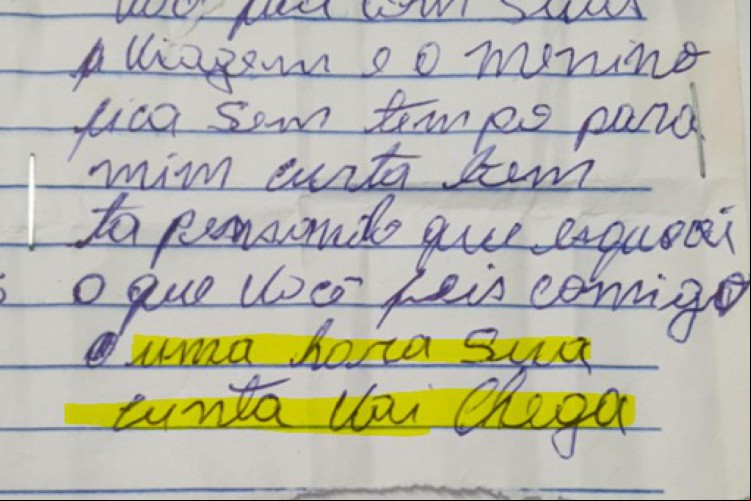 você sua com suas
viagem e o menino
fica sem tempo para
mim curta bem
ta pensando que esquesi
o que você feis comigo
uma hora sua
cunta vai chega